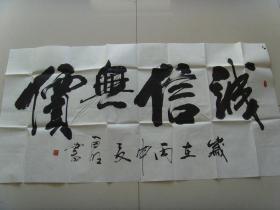 誠信無價
歲在丙申夏
書